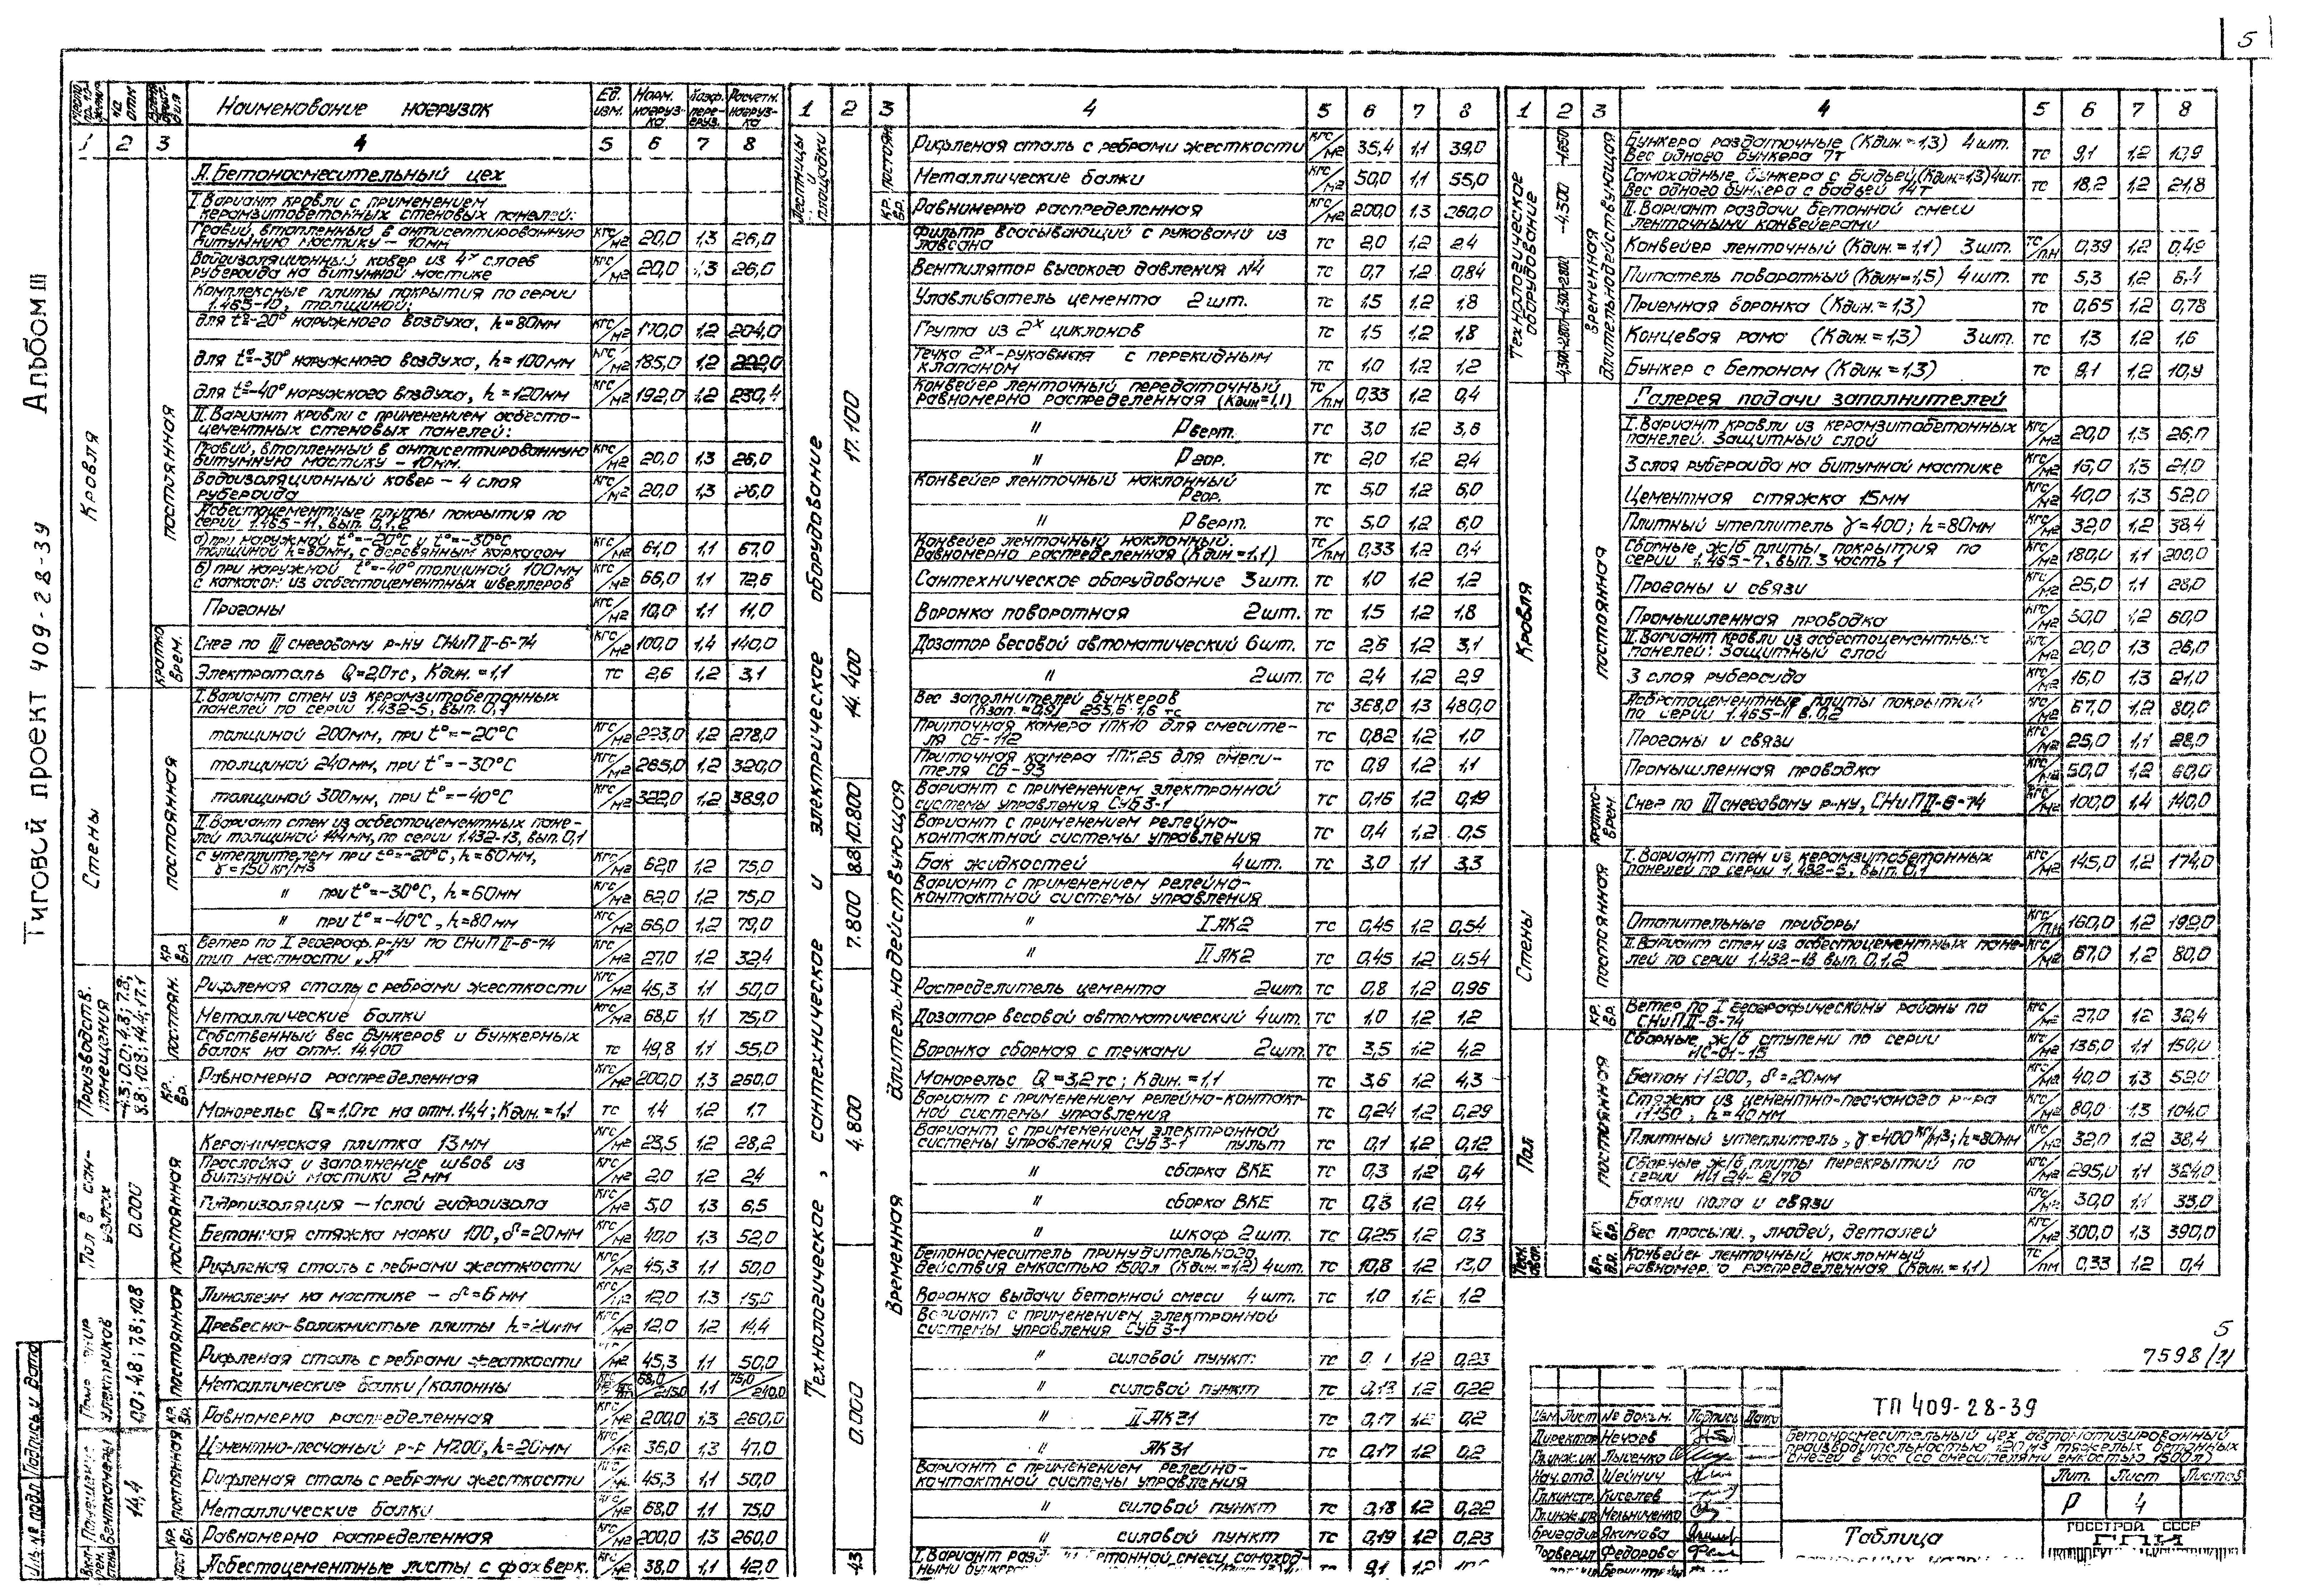 5
Типовой проект 409-28-39 Альбом III
Наименование нагрузок
Ед. изм.
Норм. нагруз-ка
Коэф. пере-груз.
Расчетн. нагруз-ка
1 2 3 4 5 6 7 8
Кровля
постоянная
А. Бетоносмесительный цех
I. Вариант кровли с применением
керамзитобетонных стеновых панелей:
Гравий, втопленный в антисептированную
битумную мастику – 10мм кгс/м2 20,0 1,3 26,0
Водоизоляционный ковер из 4х слоев
рубероида на битумной мастике кгс/м2 20,0 1,3 26,0
Комплексные плиты покрытия по серии
1.465-10, толщиной:
для t°-20° наружного воздуха, h=80мм кгс/м2 170,0 1,2 204,0
для t°=-30° наружного воздуха, h=100мм кгс/м2 185,0 1,2 222,0
для t°-40° наружного воздуха, h=120мм кгс/м2 192,0 1,2 230,4
II. Вариант кровли с применением асбесто-
цементных стеновых панелей:
Гравий, втопленный в антисептированную
битумную мастику – 10мм. кгс/м2 20,0 1,3 26,0
Водоизоляционный ковер – 4 слоя
рубероида кгс/м2 20,0 1,3 26,0
Асбестоцементные плиты покрытия по
серии 1.465-11, вып. 0,1,2
а) при наружной t°=-20°С и t°=-30°С
толщиной h=80мм, с деревянным каркасом кгс/м2 61,0 1,1 67,0
б) при наружной t°=-40° толщиной 100мм
с каркасом из асбестоцементных швеллеров кгс/м2 66,0 1,1 72,6
Прогоны кгс/м2 10,0 1,1 11,0
Кратко врем.
Снег по III снеговому р-ну СНиП II-6-74 кгс/м2 100,0 1,4 140,0
Электроталь Q=2,0тс, Кдин.=1,1 тс 2,6 1,2 3,1
Стены
постоянная
I. Вариант стен из керамзитобетонных
панелей по серии 1.432-5, вып. 0,1
толщиной 200мм, при t°=-20°С кгс/м2 223,0 1,2 278,0
толщиной 240мм, при t°=-30°С кгс/м2 265,0 1,2 320,0
толщиной 300мм, при t°=-40°С кгс/м2 322,0 1,2 389,0
II. Вариант стен из асбестоцементных пане-
лей толщиной 144мм, по серии 1.432-13, вып. 0,1
с утеплителем при t°=-20°С, h=60мм,
γ=150 кг/м3 кгс/м2 62,0 1,2 75,0
" при t°=-30°С, h=60мм кгс/м2 62,0 1,2 75,0
" при t°=-40°С, h=80мм кгс/м2 66,0 1,2 79,0
кр. вр.
Ветер по I географ. р-ну по СНиП II-6-74
тип местности „А" кгс/м2 27,0 1,2 32,4
Производств. помещения
-4.3; 0.0; 4.8; 7.8; 8.8; 10.8; 14.4; 17.1
постоян.
Рифленая сталь с ребрами жесткости кгс/м2 45,3 1,1 50,0
Металлические балки кгс/м2 68,0 1,1 75,0
Собственный вес бункеров и бункерных
балок на отм. 14.400 тс 49,8 1,1 55,0
кр. вр.
Равномерно распределенная кгс/м2 200,0 1,3 260,0
Монорельс Q=1,0тс на отм. 14,4; Кдин.=1,1 тс 1,4 1,2 1,7
Пол в сан-узлах
0.000
постоянная
Керамическая плитка 13мм кгс/м2 23,5 1,2 28,2
Прослойка и заполнение швов из
битумной мастики 2мм кгс/м2 2,0 1,2 2,4
Гидроизоляция – 1 слой гидроизола кгс/м2 5,0 1,3 6,5
Бетонная стяжка марки 100, δ=20мм кгс/м2 40,0 1,3 52,0
Рифленая сталь с ребрами жесткости кгс/м2 45,3 1,1 50,0
электриков
0,0; 4,8; 7,8; 10,8
постоянная
Линолеум на мастике – δ=6мм 12,0 1,3
Древесно-волокнистые плиты h=20мм кгс/м2 12,0 1,2 14,4
Рифленая сталь с ребрами жесткости кгс/м2 45,3 1,1 50,0
Металлические балки/колонны 1,1
кр. вр.
Равномерно распределенная кгс/м2 200,0 1,3 260,0
Помещение венткамеры
14,4
постоянная
Цементно-песчаный р-р М200, h=20мм кгс/м2 36,0 1,3 47,0
Рифленая сталь с ребрами жесткости 45,3 1,1 50,0
Металлические балки кгс/м2 68,0 1,1 75,0
кр. вр.
Равномерно распределенная кгс/м2 200,0 1,3 260,0
Асбестоцементные листы с фахверк. кгс/м2 38,0 1,1 42,0
1 2 3 4 5 6 7 8
Лестницы и площадки
постоян
Рифленая сталь с ребрами жесткости кгс/м2 35,4 1,1 39,0
Металлические балки кгс/м2 50,0 1,1 55,0
кр. вр.
Равномерно распределенная кгс/м2 200,0 1,3 260,0
Технологическое, сантехническое и электрическое оборудование
Временная длительнодействующая
17.100
Фильтр всасывающий с рукавами из
лавсана тс 2,0 1,2 2,4
Вентилятор высокого давления №4 тс 0,7 1,2 0,84
Улавливатель цемента 2 шт. тс 1,5 1,2 1,8
Группа из 2х циклонов тс 1,5 1,2 1,8
Течка 2х-рукавная с перекидным
клапаном тс 1,0 1,2 1,2
Конвейер ленточный передаточный
равномерно распределенная (Кдин=1,1) тс/п.м 0,33 1,2 0,4
" Рверт. тс 3,0 1,2 3,6
" Ргор. тс 2,0 1,2 2,4
Конвейер ленточный наклонный
Ргор. тс 5,0 1,2 6,0
" Рверт. тс 5,0 1,2 6,0
Конвейер ленточный наклонный.
Равномерно распределенная (Кдин=1,1) тс/п.м 0,33 1,2 0,4
Сантехническое оборудование 3 шт. тс 1,0 1,2 1,2
14.400
Воронка поворотная 2 шт. тс 1,5 1,2 1,8
Дозатор весовой автоматический 6 шт. тс 2,6 1,2 3,1
" 2 шт. тс 2,4 1,2 2,9
Вес заполнителей бункеров
тс 368,0 1,3 480,0
Приточная камера 1ПК10 для смесите-
ля СБ-112 тс 0,82 1,2 1,0
Приточная камера 1ПК25 для смеси-
теля СБ-93 тс 0,9 1,2 1,1
10.800
Вариант с применением электронной
системы управления СУБ 3-1 тс 0,16 1,2 0,19
Вариант с применением релейно-
контактной системы управления тс 0,4 1,2 0,5
8.8
Бак жидкостей 4 шт. тс 3,0 1,1 3,3
7.800
Вариант с применением релейно-
контактной системы управления
" I ЯК2 тс 0,45 1,2 0,54
" II ЯК2 тс 0,45 1,2 0,54
4.800
Распределитель цемента 2 шт тс 0,8 1,2 0,96
Дозатор весовой автоматический 4 шт. тс 1,0 1,2 1,2
Воронка сборная с течками 2 шт. тс 3,5 1,2 4,2
Монорельс Q=3,2тс; Кдин.=1,1 тс 3,6 1,2 4,3
Вариант с применением релейно-контакт-
ной системы управления тс 0,24 1,2 0,29
Вариант с применением электронной
системы управления СУБ 3-1 пульт тс 0,1 1,2 0,12
" сборка ВКЕ тс 0,3 1,2 0,4
" сборка ВКЕ тс 0,3 1,2 0,4
" шкаф 2 шт. тс 0,25 1,2 0,3
0.000
Бетоносмеситель принудительного
действия емкостью 1500л (Кдин.=1,2) 4 шт. тс 10,8 1,2 13,0
Воронка выдачи бетонной смеси 4 шт. тс 1,0 1,2 1,2
Вариант с применением электронной
системы управления СУБ 3-1
" силовой пункт тс 1,2 0,23
" силовой пункт тс 1,2 0,22
" II ЯК31 тс 0,17 1,2 0,2
" ЯК31 тс 0,17 1,2 0,2
Вариант с применением релейно-
контактной системы управления
" силовой пункт тс 0,18 1,2 0,22
" силовой пункт тс 0,19 1,2 0,23
1 2 3 4 5 6 7 8
Технологическое оборудование
Временная длительнодействующая
Бункера раздаточные (Кдин.=1,3) 4 шт.
Вес одного бункера 7т тс 9,1 1,2 10,9
Самоходные бункера с бадьей (Кдин=1,3) 4 шт.
Вес одного бункера с бадьей 14т тс 18,2 1,2 21,8
II. Вариант раздачи бетонной смеси
ленточными конвейерами
Конвейер ленточный (Кдин.=1,1) 3 шт. тс/п.м 0,39 1,2
Питатель поворотный (Кдин=1,5) 4 шт. тс 5,3 1,2 6,4
Приемная воронка (Кдин.=1,3) тс 0,65 1,2 0,78
Концевая рама (Кдин.=1,3) 3 шт. тс 1,3 1,2 1,6
Бункер с бетоном (Кдин.=1,3) тс 9,1 1,2 10,9
Кровля
постоянная
Галерея подачи заполнителей
I. Вариант кровли из керамзитобетонных
панелей. Защитный слой кгс/м2 20,0 1,3 26,0
3 слоя рубероида на битумной мастике кгс/м2 16,0 1,3 21,0
Цементная стяжка 15мм кгс/м2 40,0 1,3 52,0
Плитный утеплитель γ=400; h=80мм кгс/м2 32,0 1,2 38,4
Сборные ж/б плиты покрытия по
серии 1.465-7, вып. 3 часть 1 кгс/м2 180,0 1,1 200,0
Прогоны и связи кгс/м2 25,0 1,1 28,0
Промышленная проводка кгс/м2 50,0 1,2 60,0
II. Вариант кровли из асбестоцементных
панелей: Защитный слой кгс/м2 20,0 1,3 26,0
3 слоя рубероида кгс/м2 16,0 1,3 21,0
Асбестоцементные плиты покрытий
по серии 1.465-11 в. 0,2 кгс/м2 67,0 1,2 80,0
Прогоны и связи кгс/м2 25,0 1,1 28,0
Промышленная проводка кгс/м2 50,0 1,2 60,0
Кратко-врем
Снег по III снеговому р-ну, СНиП II-6-74 кгс/м2 100,0 1,4 140,0
Стены
постоянная
I. Вариант стен из керамзитобетонных
панелей по серии 1.432-5, вып. 0,1 кгс/м2 145,0 1,2 174,0
Отопительные приборы кгс/п.м 160,0 1,2 192,0
II. Вариант стен из асбестоцементных пане-
лей по серии 1.432-13 вып. 0,1,2 кгс/м2 67,0 1,2 80,0
кр. вр.
Ветер по I географическому району по
СНиП II-6-74 кгс/м2 27,0 1,2 32,4
Пол
постоянная
Сборные ж/б ступени по серии
ИС-01-15 кгс/м2 136,0 1,1 150,0
Бетон М200, δ=20мм кгс/м2 40,0 1,3 52,0
Стяжка из цементно-песчаного р-ра
М150, h=40мм кгс/м2 80,0 1,3 104,0
Плитный утеплитель, γ=400 кг/м3; h=80мм кгс/м2 32,0 1,2 38,4
Сборные ж/б плиты перекрытий по
серии ИИ24-2/70 кгс/м2 295,0 1,1 324,0
Балки пола и связи кгс/м2 30,0 1,1 33,0
кр. вр.
Вес просыпи, людей, деталей кгс/м2 300,0 1,3 390,0
Конвейер ленточный наклонный
равномерно распределенная (Кдин.=1,1) тс/пм 0,33 1,2 0,4
5
7598/21
ТП 409-28-39
Изм Лист № докум. Подпись Дата
Директор Нечаев
Гл.инж.ин. Лысенко
Нач. отд. Шейнич
Гл.констр. Киселев
Гл.инж.пр. Мельниченко
Бригадир Якимова
Проверил Федорова
Бетоносмесительный цех автоматизированный
производительностью 120 м3 тяжелых бетонных
смесей в час (со смесителями емкостью 1500л)
Лит. Лист Листов
Р 4
Таблица
ГОССТРОЙ СССР
Инв.№ подл. Подпись и дата